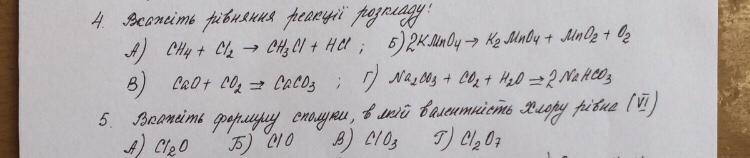 4. Вкажіть рівняння реакції розкладу!
А) CH4 + Cl2 → CH3Cl + HCl ; Б) 2KMnO4 → K2MnO4 + MnO2 + O2
В) CaO + CO2 ⇌ CaCO3 ; Г) Na2CO3 + CO2 + H2O ⇌ 2NaHCO3
5. Вкажіть формулу сполуки, в якій валентність Хлору рівна (VI)
А) Cl2O Б) ClO В) ClO3 Г) Cl2O7